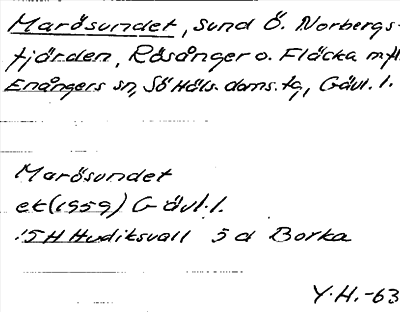 Marösundet, sund Ö. Norbergs-
fjärden, Rösånger o. Fläcka m fl.
Enångers sn, Sö Häls. doms. tg, Gävl. l.
Marösundet
ek (1959) Gävl. l.
15H Hudiksvall 5 d Borka
Y. H. -63